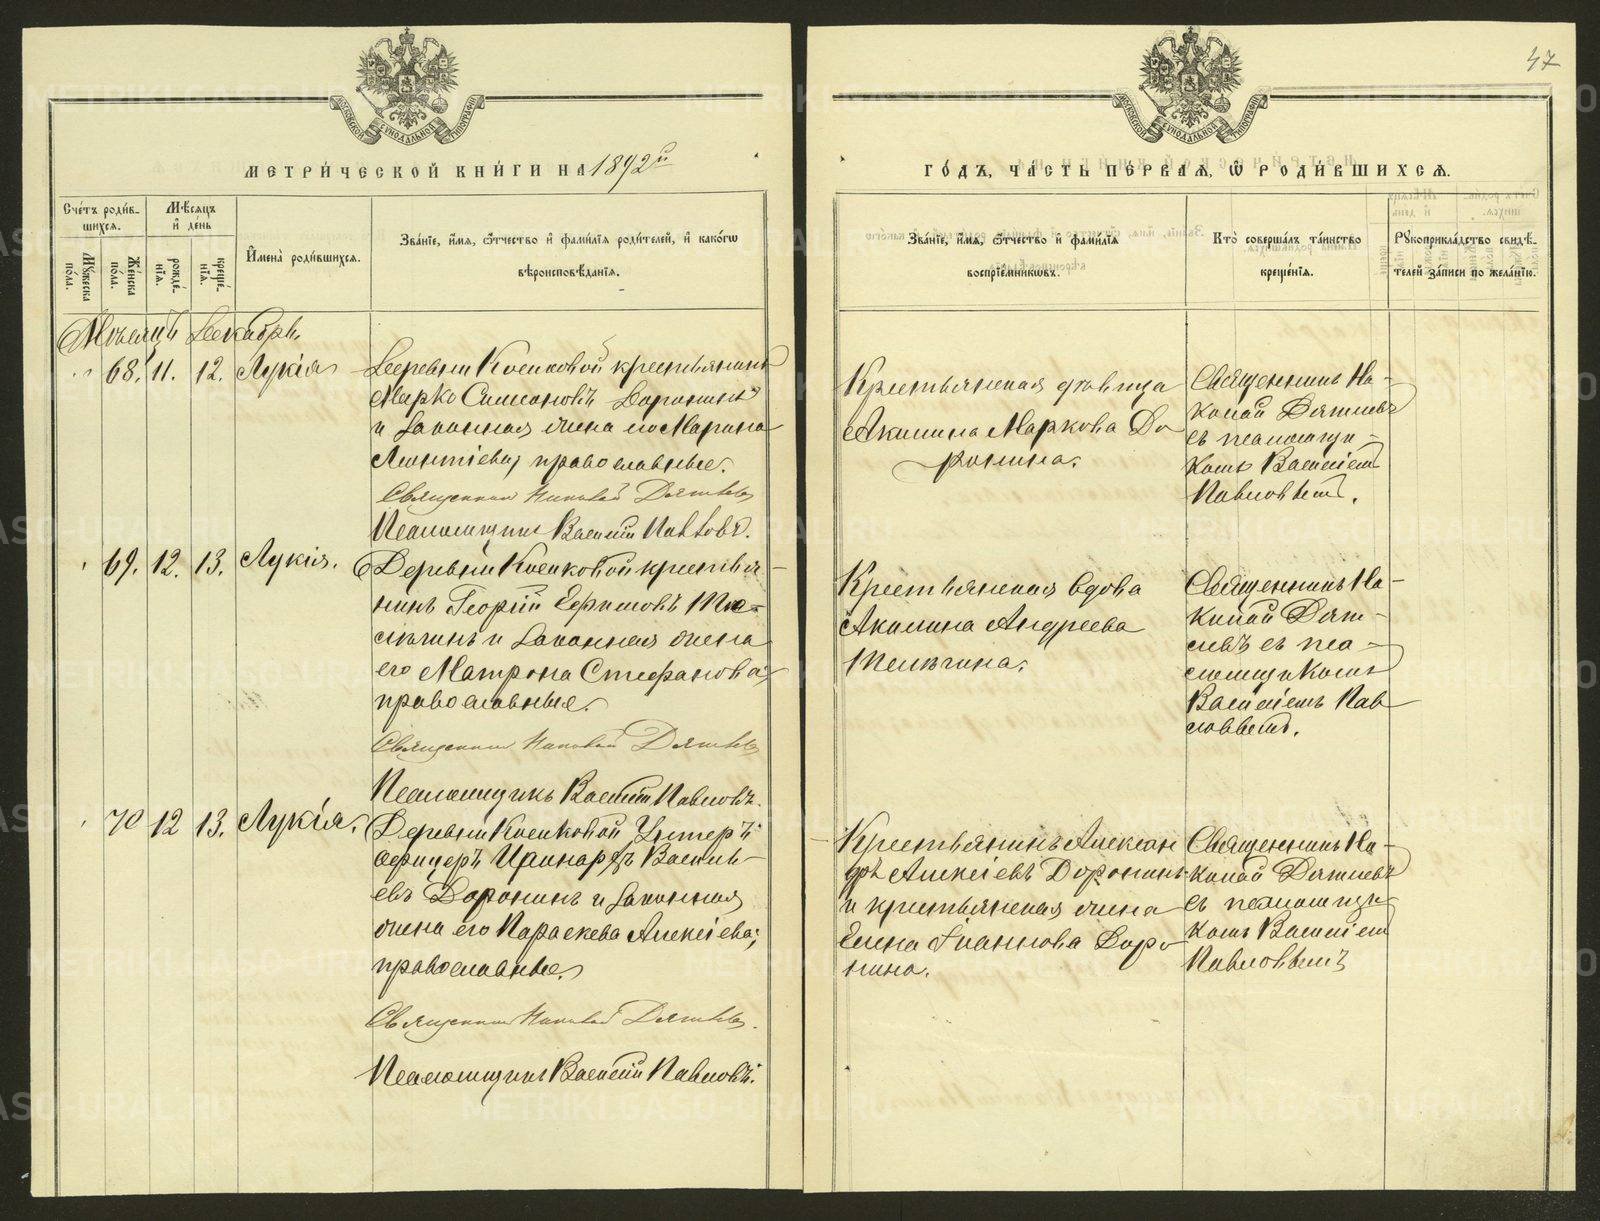 47
МОСКОВСКОЙ СѴНОДАЛЬНОЙ ТИПОГРАФІИ
МОСКОВСКОЙ СѴНОДАЛЬНОЙ ТИПОГРАФІИ
МЕТРИ́ЧЕСКОЙ КНИ́ГИ НА 1892й
ГО́ДЪ, ЧА́СТЬ ПЕ́РВАѦ, Ѡ РОДИ́ВШИХСѦ.
Сче́тъ роди́в-
шихсѧ.
Мꙋ́жеска
по́ла.
Же́нска
по́ла.
Мѣ́сѧцъ
и҆ де́нь
рожде́-
нїѧ.
креще́-
нїѧ.
И҆мена̀ роди́вшихсѧ.
Зва́нїе, и҆́мѧ, ѻ҆́тчество и҆ фами́лїѧ роди́телей, и҆ како́гѡ
вѣроисповѣ́данїѧ.
Зва́нїе, и҆́мѧ, ѻ҆́тчество и҆ фами́лїѧ
воспрїе́мникѡвъ.
Кто̀ соверша́лъ та́инство
креще́нїѧ.
Рꙋкоприкла́дство свидѣ́-
телей за́писи по жела́нїю.
Мѣсяцъ Декабрь.
" 68. 11. 12. Лукія
Деревни Косиковой крестьянинъ
Марко Симеоновъ Доронинъ
и законная жена его Марина
Леонтіева, православные.
Священникъ Николай Дягилевъ
Псаломщикъ Василій Павловъ.
Крестьянская дѣвица
Акилина Маркова До
ронина.
Священникъ Ни-
колай Дягилевъ
съ псаломщи-
комъ Василіемъ
Павловымъ.
" 69. 12. 13. Лукія.
Деревни Косиковой крестья-
нинъ Георгій Ефимовъ Те-
лѣгинъ и законная жена
его Матрона Стефанова,
православные.
Священникъ Николай Дягилевъ
Псаломщикъ Василій Павловъ.
Крестьянская вдова
Акилина Андреева
Телѣгина.
Священникъ Ни-
колай Дяги-
левъ съ пса-
ломщикомъ
Василіемъ Пав
ловымъ.
" 70 12 13. Лукія.
Деревни Косиковой Унтеръ-
офицеръ Иринархъ Василь-
евъ Доронинъ и законная
жена его Параскева Алексіева,
православные.
Священникъ Николай Дягилевъ.
Псаломщикъ Василій Павловъ.
Крестьянинъ Алексан
дръ Алексіевъ Доронинъ
и крестьянская жена
Елена Іоаннова Доро
нина.
Священникъ Ни-
колай Дягилевъ
съ псаломщи
комъ Василіемъ
Павловымъ
METRIKI.GASO-URAL.RU